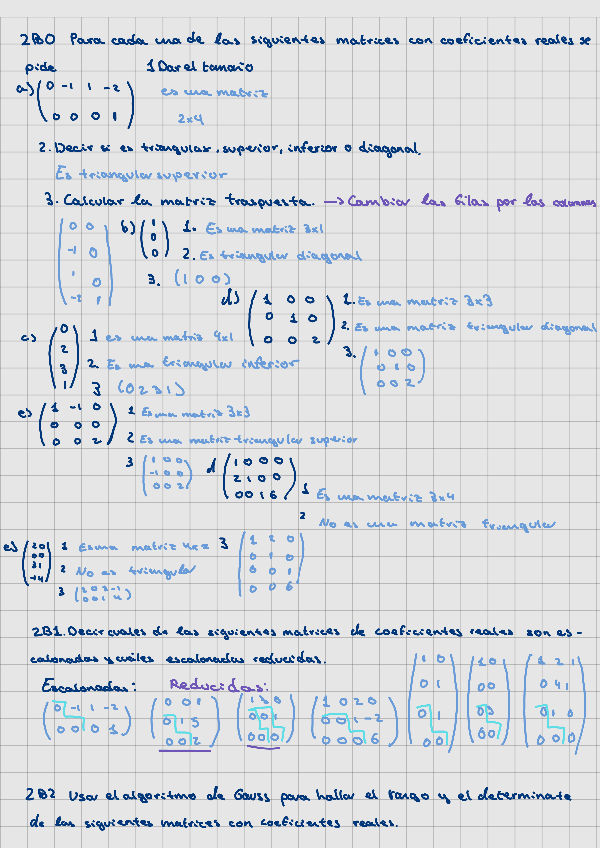 2B0 Para cada una de las siguientes matrices con coeficientes reales se
pide 1 Dar el tamaño
a) ( 0 -1 1 -2 es una matriz
0 0 0 1 ) 2x4
2. Decir si es triangular, superior, inferior o diagonal.
Es triangular superior
3. Calcular la matriz traspuesta. → Cambiar las filas por las columnas
( 0 0
-1 0
1 0
-2 1 )
b) ( 1
0
0 )
1. Es una matriz 3x1
2. Es triangular diagonal
3. (1 0 0)
c) ( 0
2
3
1 )
1 es una matriz 4x1
2. Es una triangular inferior
3 (0 2 3 1)
d) ( 1 0 0
0 1 0
0 0 2 )
1. Es una matriz 3x3
2. Es una matriz triangular diagonal
3. ( 1 0 0
0 1 0
0 0 2 )
e) ( 1 -1 0
0 0 0
0 0 2 )
1 Es una matriz 3x3
2 Es una matriz triangular superior
3 ( 1 0 0
-1 0 0
0 0 2 )
d ( 1 0 0 0
2 1 0 0
0 0 1 6 )
1 Es una matriz 3x4
2 No es una matriz triangular
3 ( 1 2 0
0 1 0
0 0 1
0 0 6 )
e) ( 2 0
0 0
3 1
-1 4 )
1 Es una matriz 4x2
2 No es triangular
3 ( 2 0 3 -1
0 0 1 4 )
2B1. Decir cuales de las siguientes matrices de coeficientes reales son es-
calonadas y cuáles escalonadas reducidas.
Escalonadas: Reducidas:
( 0 -1 1 -2
0 0 0 1 )
( 0 0 1
0 1 5
0 0 2 )
( 1 3 0
0 0 1
0 0 0 )
( 1 0 2 0
0 0 1 -2
0 0 0 6 )
( 1 0
0 1
0 1
0 0 )
( 1 0
0 0
0 0
0 0 )
( 1 2 1
0 4 1
0 1 0
0 0 0 )
2B2 Usar el algoritmo de Gauss para hallar el rango y el determinate
de las siguientes matrices con coeficientes reales.